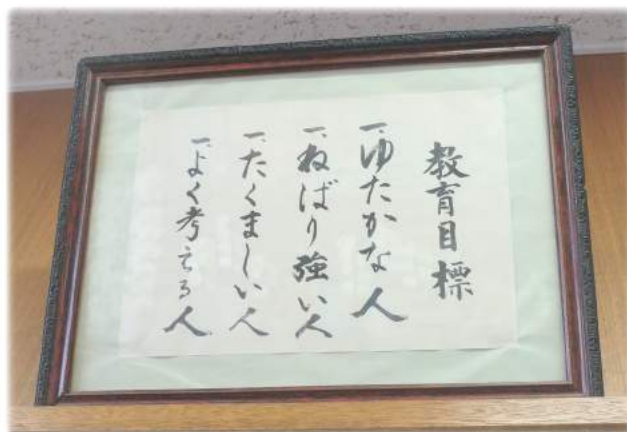 教育目標
一、ゆたかな人
一、ねばり強い人
一、たくましい人
一、よく考える人